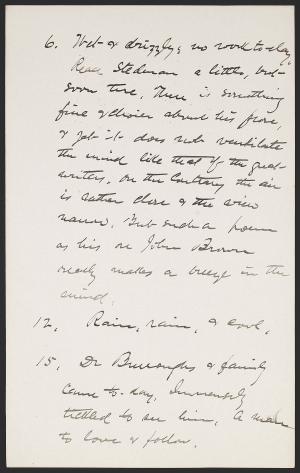 6. Wet & drizzly; no work to-day.
Read Stedman a little, but
soon tire. There is something
fine & choice about his prose,
& yet it does not ventilate
the mind like that of the great
writers, on the contrary the air
is rather close & the view
narrow. But such a poem
as his on John Brown
really makes a breeze in the
mind.
12. Rain, rain, & cool.
15. Dr Burroughs & family
came to-day. Immensely
tickled to see him. A man
to love & follow.